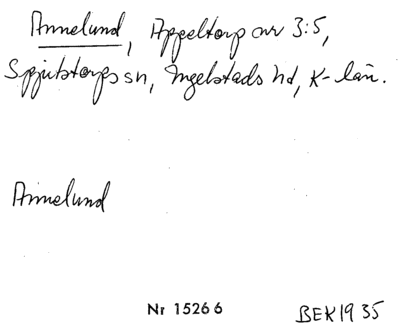 Annelund, Appeltorp nr 3:5,
Spjutstorps sn, Ingelstads hd, K-län.
Annelund
Nr 15266 BEK19 35